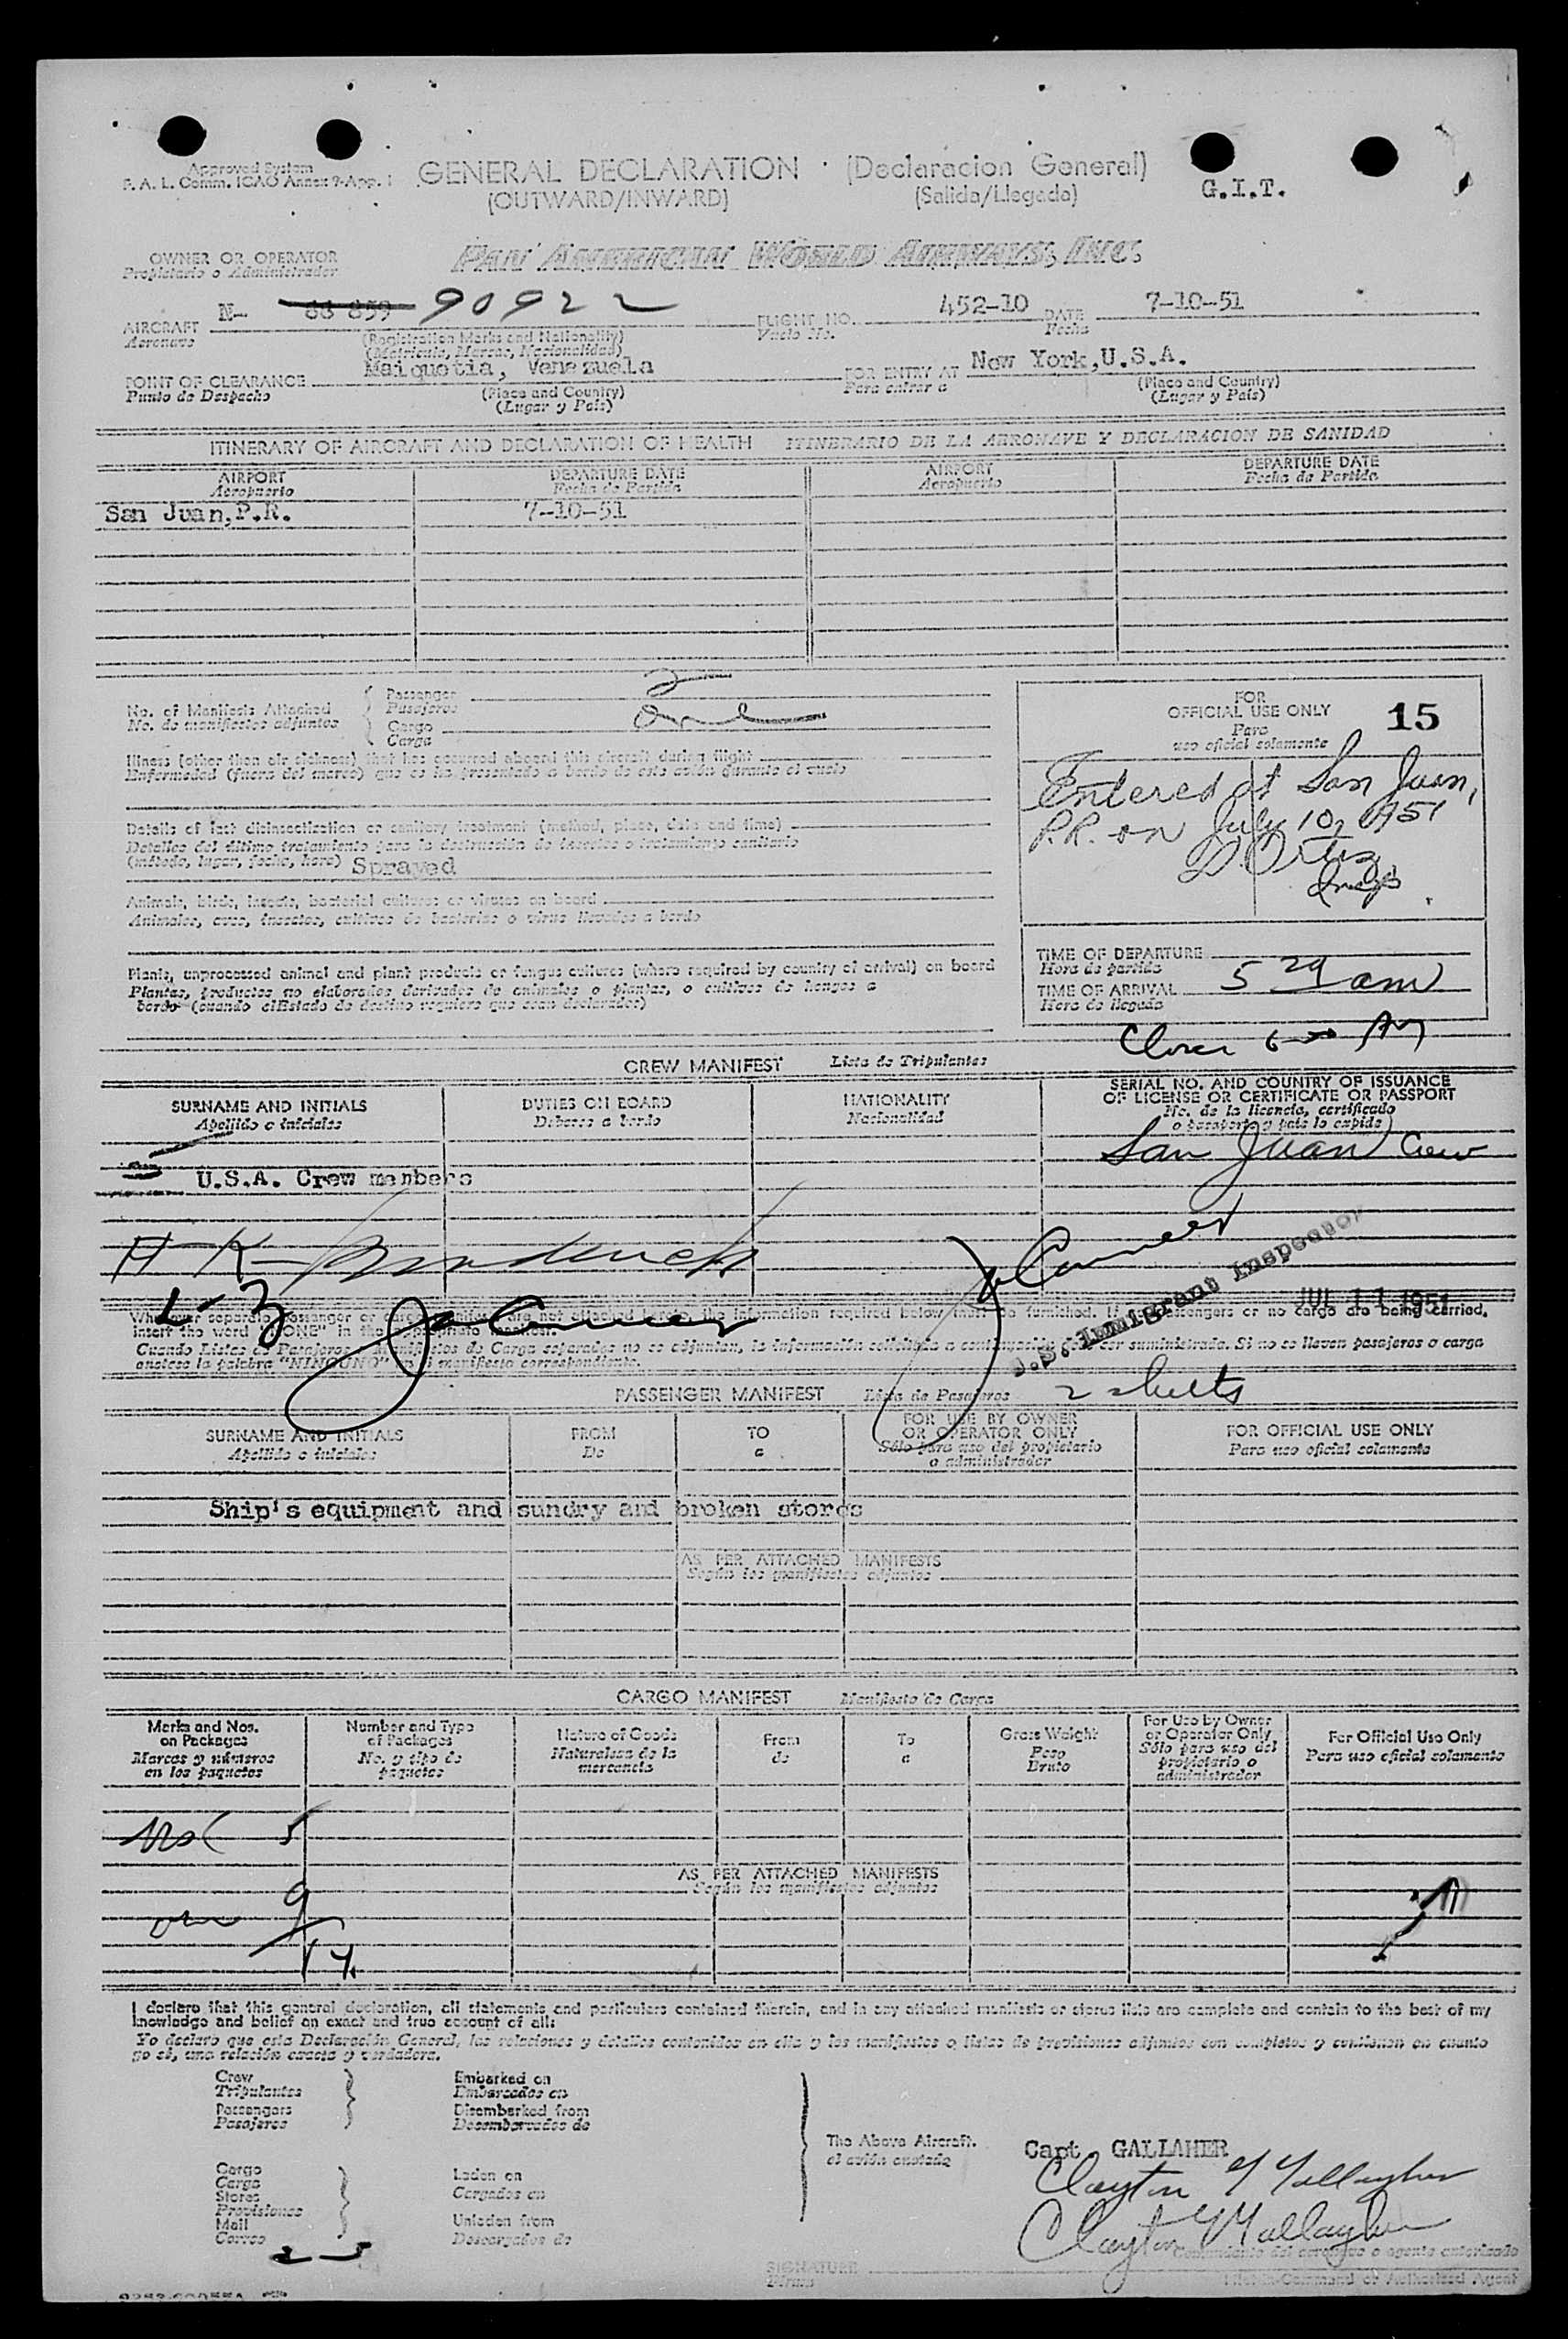 Approved System
F. A. L. Comm. ICAO Annex 9-App. 1
GENERAL DECLARATION · (Declaracion General)
(OUTWARD/INWARD) (Salida/Llegada)
G.I.T.
OWNER OR OPERATOR
Propietario o Administrador
PAN AMERICAN WORLD AIRWAYS, INC.
AIRCRAFT N- 88 859 90922 FLIGHT NO. 452-10 DATE 7-10-51
Aeronave (Registration Marks and Nationality) Vuelo No. Fecha
(Matricula, Marcas, Nacionalidad)
POINT OF CLEARANCE Maiquetia, Venezuela FOR ENTRY AT New York,U.S.A.
Punto de Despacho (Place and Country) Para entrar a (Place and Country)
(Lugar y País) (Lugar y País)
ITINERARY OF AIRCRAFT AND DECLARATION OF HEALTH ITINERARIO DE LA AERONAVE Y DECLARACION DE SANIDAD
AIRPORT DEPARTURE DATE AIRPORT DEPARTURE DATE
Aeropuerto Fecha de Partida Aeropuerto Fecha de Partida
San Juan,P.R. 7-10-51
No. of Manifests Attached
No. de manifiestos adjuntos
Passenger
Pasajeros
2
Cargo
Carga
one
Illness (other than air sickness) that has occurred aboard this aircraft during flight
Enfermedad (fuera del mareo) que se ha presentado a bordo de este avión durante el vuelo
Details of last disinsectization or sanitary treatment (method, place, date and time)
Detalles del último tratamiento para la destrucción de insectos o tratamiento sanitario
(método, lugar, fecha, hora) Sprayed
Animals, birds, insects, bacterial cultures or viruses on board
Animales, aves, insectos, cultivos de bacterias o virus llevados a bordo
Plants, unprocessed animal and plant products or fungus cultures (where required by country of arrival) on board
Plantas, productos no elaborados derivados de animales o plantas, o cultivos de hongos a
bordo (cuando elEstado de destino requiere que sean declarados)
FOR
OFFICIAL USE ONLY 15
Para
uso oficial solamente
Entered at San Juan,
P.R. on July 10, 1951
D. Ortiz
Insp
TIME OF DEPARTURE
Hora de partida
TIME OF ARRIVAL 5 29 am
Hora de llegada
CREW MANIFEST Lista de Tripulantes
SURNAME AND INITIALS DUTIES ON BOARD NATIONALITY SERIAL NO. AND COUNTRY OF ISSUANCE
OF LICENSE OR CERTIFICATE OR PASSPORT
Apellido o iniciales Deberes a bordo Nacionalidad No. de la licencia, certificado
o pasaporte y país lo expide
San Juan Crew
5 U.S.A. Crew members
H K
U.S. Immigrant Inspector
JUL 11 1951
Whenever separate Passenger or Cargo Manifests are not attached hereto, the information required below must be furnished. If no passengers or no cargo are being carried,
insert the word "NONE" in the appropriate manifest.
Cuando Listas de Pasajeros o Manifiestos de Carga separados no se adjuntan, la información solicitada a continuación debe ser suministrada. Si no se llevan pasajeros o carga
anótese la palabra "NINGUNO" en el manifiesto correspondiente.
PASSENGER MANIFEST Lista de Pasajeros 2 sheets
SURNAME AND INITIALS FROM TO FOR USE BY OWNER FOR OFFICIAL USE ONLY
OR OPERATOR ONLY
Apellido o iniciales De a Sólo para uso del propietario Para uso oficial solamente
o administrador
Ship's equipment and sundry and broken stores
AS PER ATTACHED MANIFESTS
Según los manifiestos adjuntos
CARGO MANIFEST Manifiesto de Carga
Marks and Nos.
on Packages
Marcas y números
en los paquetes
Number and Type
of Packages
No. y tipo de
paquetes
Nature of Goods
Naturaleza de la
mercancía
From
de
To
a
Gross Weight
Peso
Bruto
For Use by Owner
or Operator Only
Sólo para uso del
propietario o
administrador
For Official Use Only
Para uso oficial solamente
5
AS PER ATTACHED MANIFESTS
Según los manifiestos adjuntos
9
14
I declare that this general declaration, all statements and particulars contained therein, and in any attached manifests or stores lists are complete and contain to the best of my
knowledge and belief an exact and true account of all:
Yo declaro que esta Declaración General, las relaciones y detalles contenidos en ella y los manifiestos o listas de provisiones adjuntos son completos y contienen en cuanto
yo sé, una relación exacta y verdadera.
Crew
Tripulantes
Passengers
Pasajeros
Embarked on
Embarcados en
Disembarked from
Desembarcados de
Cargo
Carga
Stores
Provisiones
Mail
Correo
Laden on
Cargados en
Unladen from
Descargados de
The Above Aircraft.
el avión anotado
Capt. GALLAHER
Clayton Y Gallagher
Clayton Y Gallagher
Comandante del aeronave o agente autorizado
SIGNATURE
Firma
Pilot-in-Command or Authorized Agent